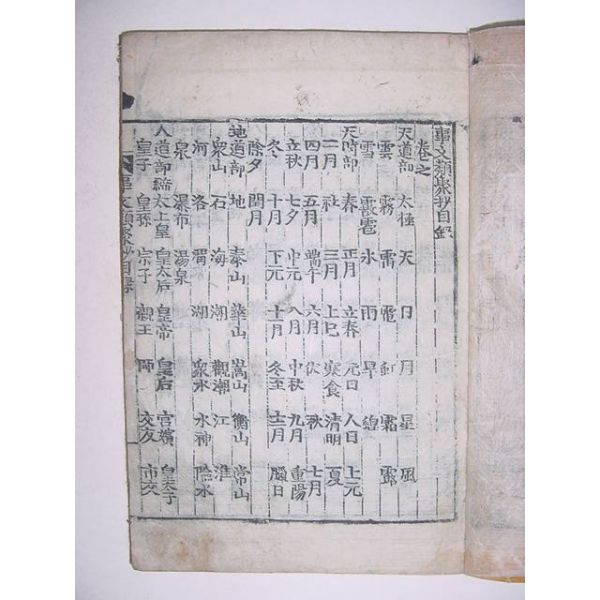 事文類聚抄目錄
卷之
天道部 太極 天 日 月 星 風
雲 霧 雷 電 虹 霜 露
雪 霰雹 氷 雨 旱 蝗
天時部 春 正月 立春 元日 人日 上元
二月 社 三月 上巳 寒食 清明 夏
四月 五月 端午 六月 伏 秋 七月
立秋 七夕 中元 八月 中秋 九月 重陽
冬 十月 下元 十一月 冬至 十二月 臘日
除夕 閏月
地道部 地 泰山 華山 嵩山 衡山 常山
衆山 石 海 潮 觀潮 江 淮
河 洛 渭 湖 衆水 水神 險水
泉 瀑布 湯泉
人道部 太上皇 皇太后 皇帝 皇后 宮嬪 皇太子
皇子 皇孫 宗子 親王 師 交友 市交
事文類聚抄目錄